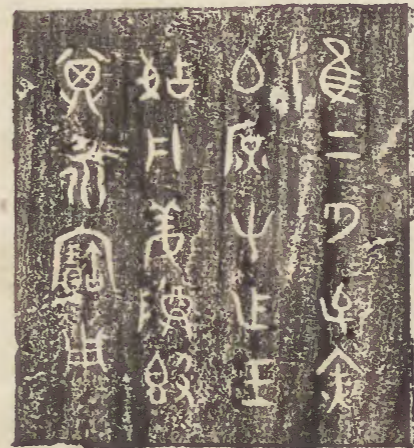 隹二月戊寅
白庶父乍王
姑凡姜尊𣪘
其永寶用